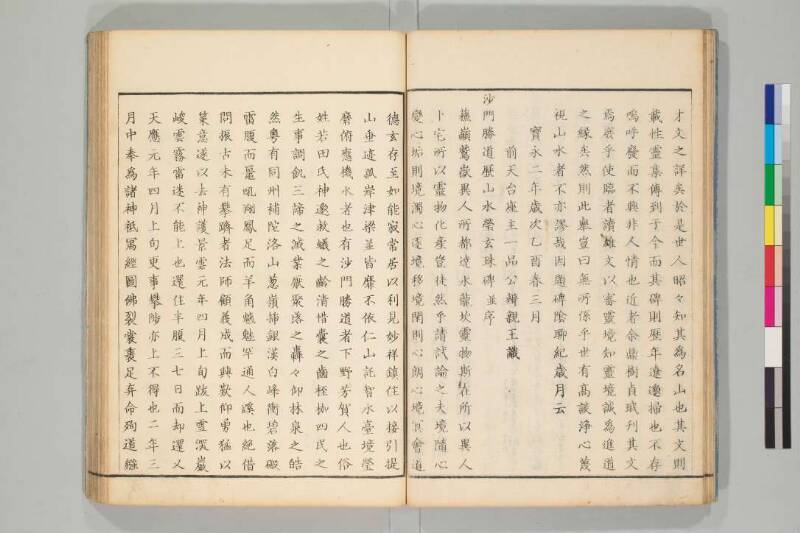 才文之詳矣於是世人昭々知其為名山也其文則
載性靈集傳到于今而其碑則歷年遼邈掃也不存
嗚呼廢而不興非人情也近者命鼎樹貞珉刊其文
焉庶乎使臨者讀雄文以審靈境知靈境誠為進道
之緣矣然則此舉豈曰無所係乎世有高談淨心蔑
視山水者不亦謬哉因題碑陰聊紀歲月云
寶永二年歲次乙酉春三月
前天台座主一品公辨親王識
沙門勝道歷山水瑩玄珠碑 並序
蘇巔鷲嶽異人所都達水龍坎靈物斯在所以異人
卜宅所以靈物化產豈徒然乎請試論之夫境隨心
變心垢則境濁心逐境移境閑則心朗心境冥會道
德玄存至如能寂常居以利見妙祥鎮住以接引提
山垂迹孤岸津梁並皆靡不依仁山託智水臺境瑩
磨俯應機水者也有沙門勝道者下野芳賀人也俗
姓若田氏神邈救蟻之齡清惜囊之齒桎枷四民之
生事調飢三諦之滅業厭聚落之轟々仰林泉之皓
然粤有同州補陀洛山蔥嶺插銀漢白峰衝碧落磤
雷腹而鼉吼翔鳳足而羊角魑魅罕通人蹊也絕借
問振古未有攀躋者法師顧義成而興歎仰勇猛以
策意遂以去神護景雲元年四月上旬跋上雪深巖
峻雲霧雷迷不能上也還住半腹三七日而却還又
天應元年四月上旬更事攀陟亦上不得也二年三
月中奉為諸神祇寫經圖佛裂裳裹足弃命殉道繦